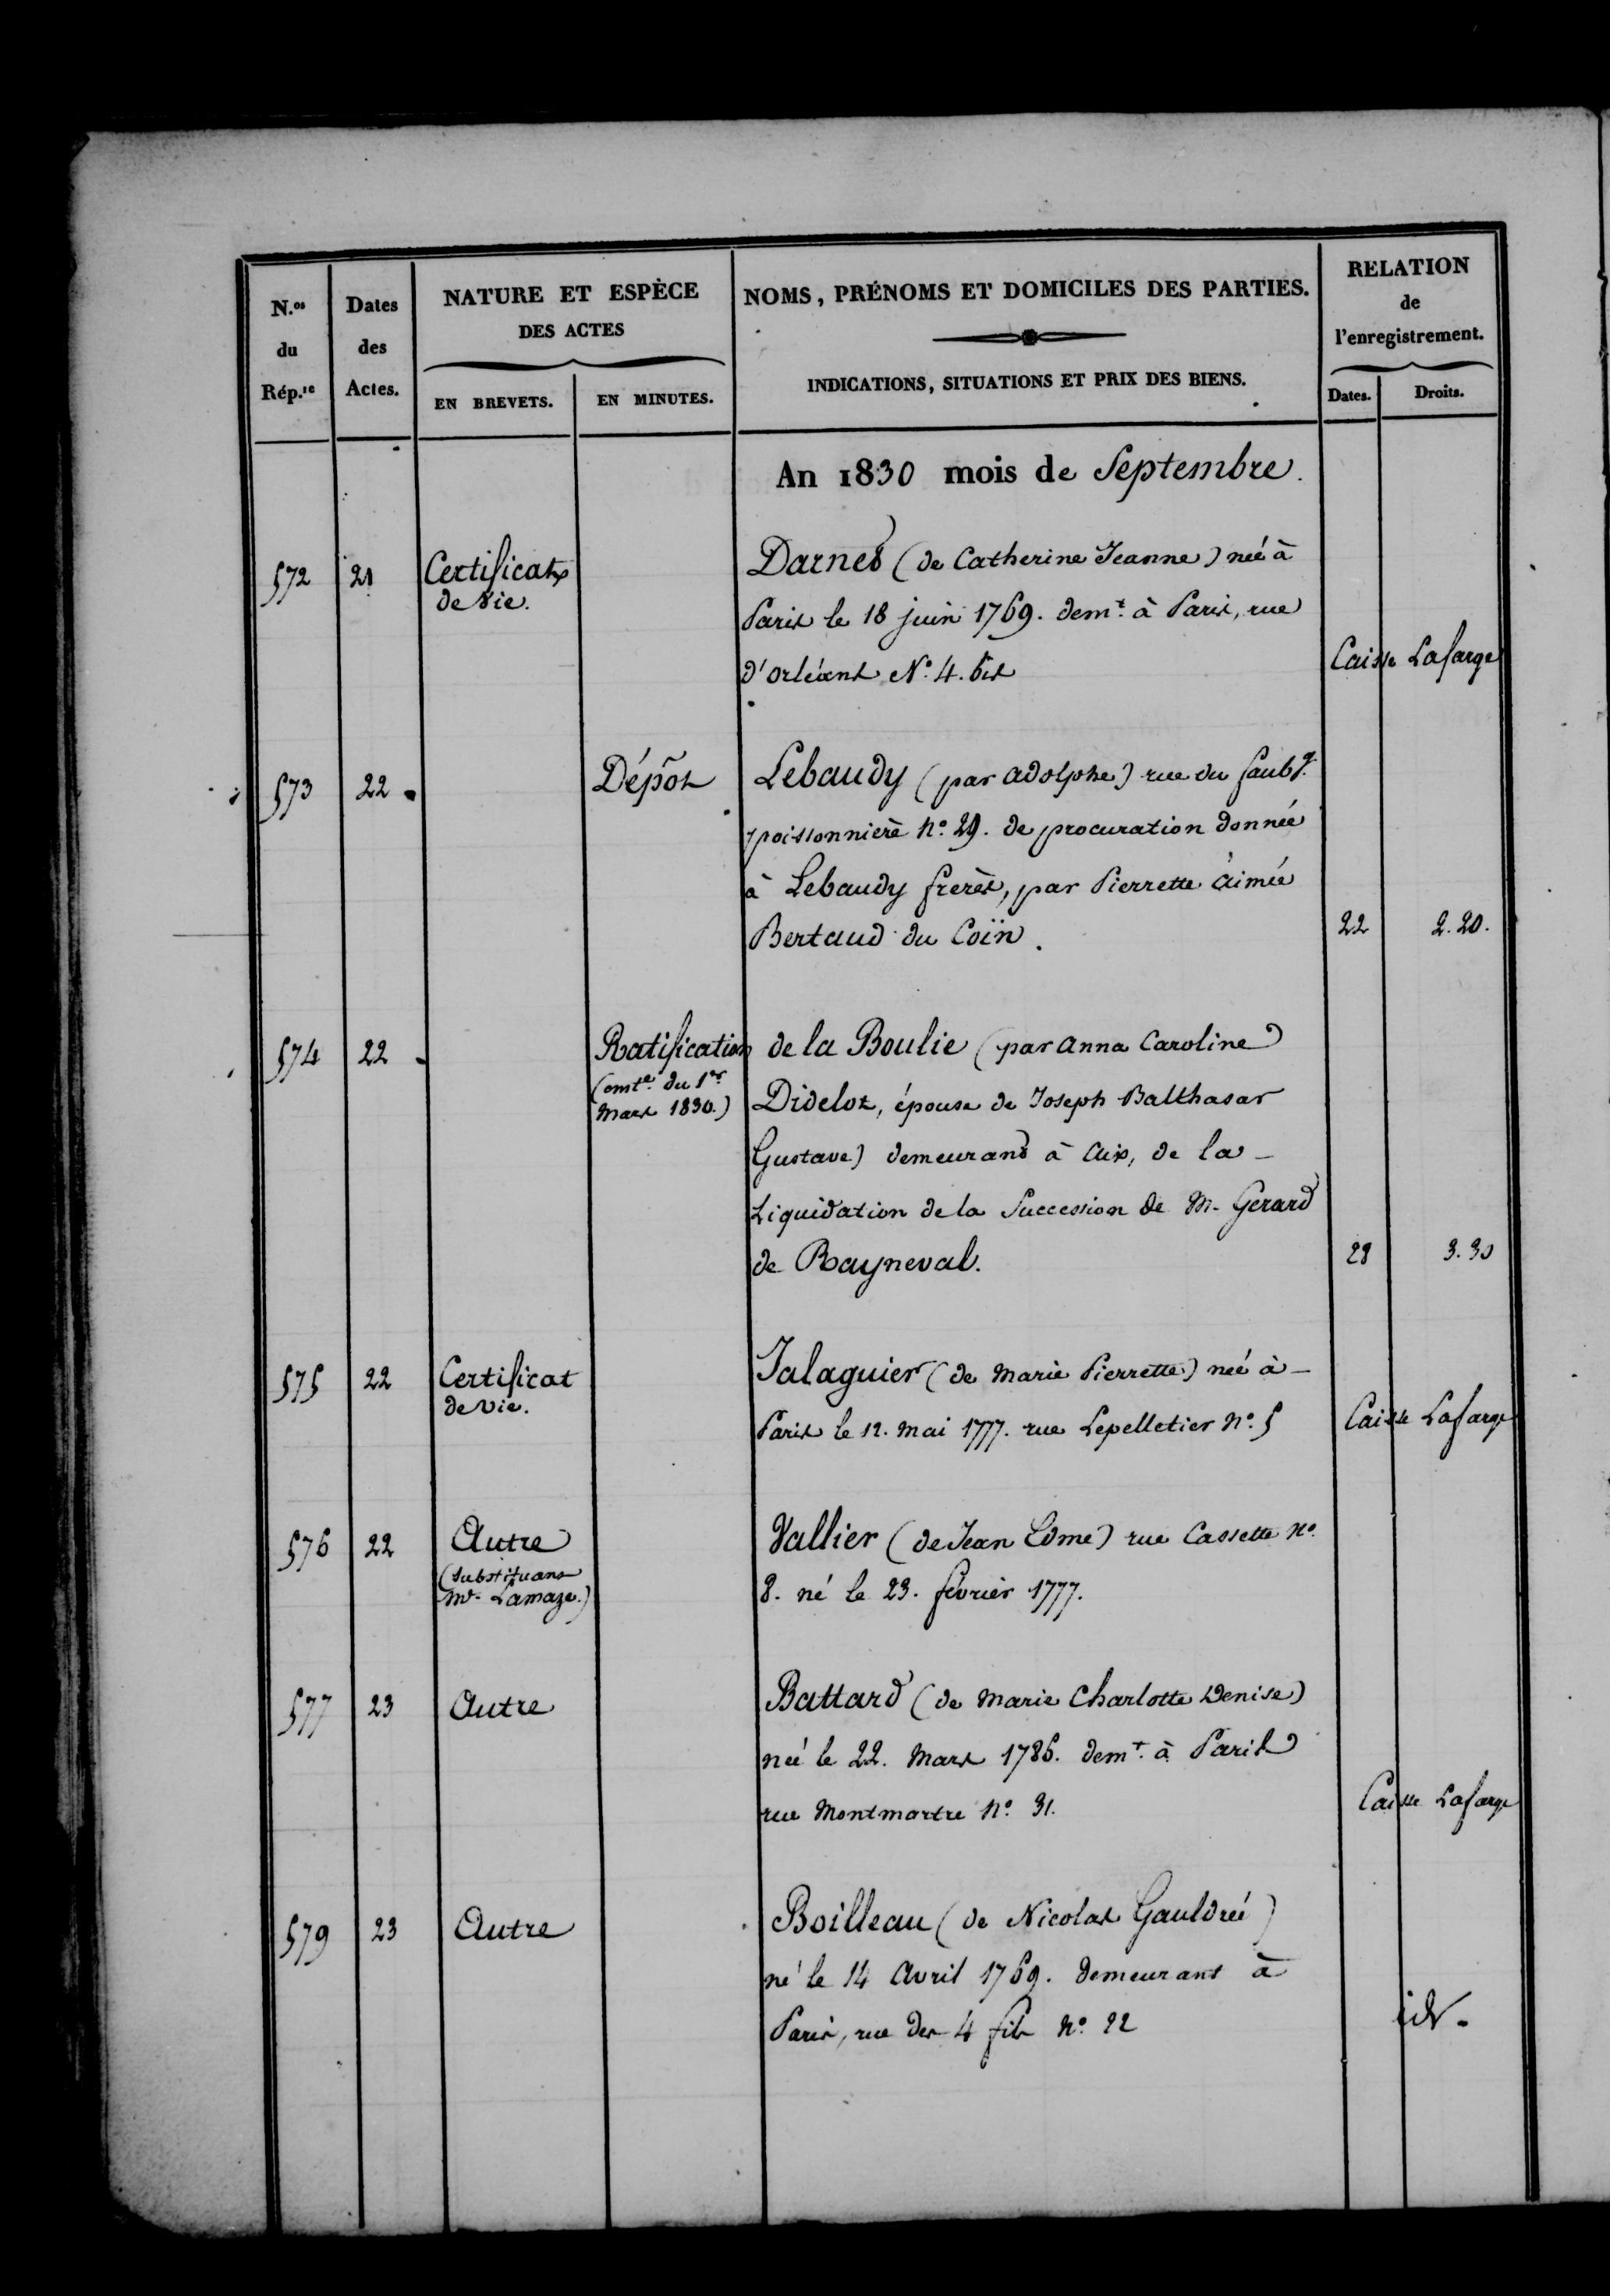 N.os du Rép.re
Dates des Actes.
NATURE ET ESPÈCE
DES ACTES
EN BREVETS.
EN MINUTES.
NOMS, PRÉNOMS ET DOMICILES DES PARTIES.
INDICATIONS, SITUATIONS ET PRIX DES BIENS.
RELATION
de
l'enregistrement.
Dates.
Droits.
An 1830 mois de Septembre.
572
21
Certificat
de vie.
Darnes (de Catherine Jeanne) née à
Paris le 18 juin 1769. demt. à Paris, rue
d'orléans No. 4. bis
Caisse Lafarge
573
22
Dépôt
Lebaudy (par adolphe) rue du faubg.
poissonnière no. 29. de procuration donnée
à Lebaudy frerès, par Pierrette aimée
Bertaud du Coïn.
22
2.20.
574
22
Ratification
(omte. du 1er.
Mars 1830.)
de la Boulie (par anna Caroline
Didelot, épouse de Joseph Balthasar
Gustave) demeurant à aix, de la
Liquidation de la Succession de M. Gerard
de Rayneval.
28
3.30
575
22
Certificat
de vie.
Jalaguier (de marie Pierrette) née à
Paris le 12. mai 1777. rue Lepelletier no. 5
Caisse Lafarge
576
22
Autre
(substituant
mr. Lamaze.)
Vallier (de Jean Edme) rue Cassette no.
8. né le 23. février 1777.
577
23
Autre
Battard (de marie Charlotte Denise)
née le 22. Mars 1786. demt. à Paris
rue Montmartre no. 31.
Caisse Lafarge
579
23
Autre
Boilleau (de Nicolas Gauldrée)
né le 14 avril 1769. demeurant à
Paris, rue des 4 fils no. 22
id.